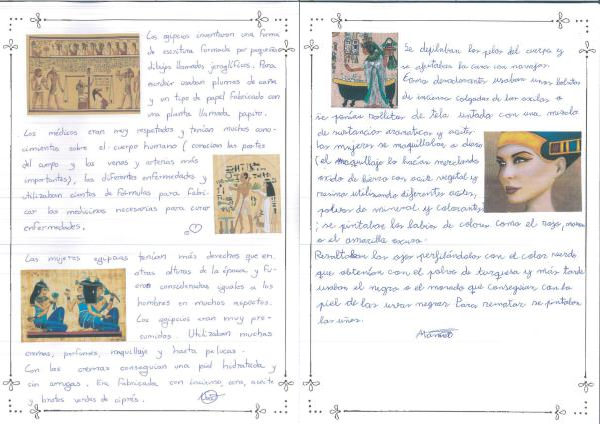 Los egipcios inventaron una forma
de escritura formada por pequeños
dibujos llamados jeroglíficos. Para
escribir usaban plumas de caña
y un tipo de papel fabricado con
una planta llamada papiro.
Los médicos eran muy respetados y tenían muchos cono-
cimientos sobre el cuerpo humano (conocían las partes
del cuerpo y las venas y arterias más
importantes), las diferentes enfermedades y
utilizaban cientos de fórmulas para fabri-
car las medicinas necesarias para curar
enfermedades.
Las mujeres egipcias tenían más derechos que en
otras culturas de la época y fu
eron consideradas iguales a los
hombres en muchos aspectos.
Los egipcios eran muy pre-
sumidos. Utilizaban muchas
cremas, perfumes, maquillaje y hasta pelucas.
Con las cremas conseguían una piel hidratada y
sin arrugas. Era fabricada con incienso, cera, aceite
y brotes verdes de ciprés.
Se depilaban los pelos del cuerpo y
se afeitaban la cara con navajas.
Como desodorantes usaban unas bolitas
de incienso colgadas de las axilas o
se ponían rollitos de tela untada con una mezcla
de sustancias aromáticas y aceites
Las mujeres se maquillaban a diario
(el maquillaje lo hacían mezclando
oxido de hierro con aceite vegetal y
resina utilizando diferentes aceites,
polvos de mineral y colorantes)
; se pintaban los labios de colores como el rojo,
o el amarillo oscuro.
Resaltaban los ojos perfilándolos con el color verde
que obtenían con el polvo de turquesa y más tarde
usaban el negro o el morado que conseguían con la
piel de las uvas negras. Para rematar se pintaban
las uñas.